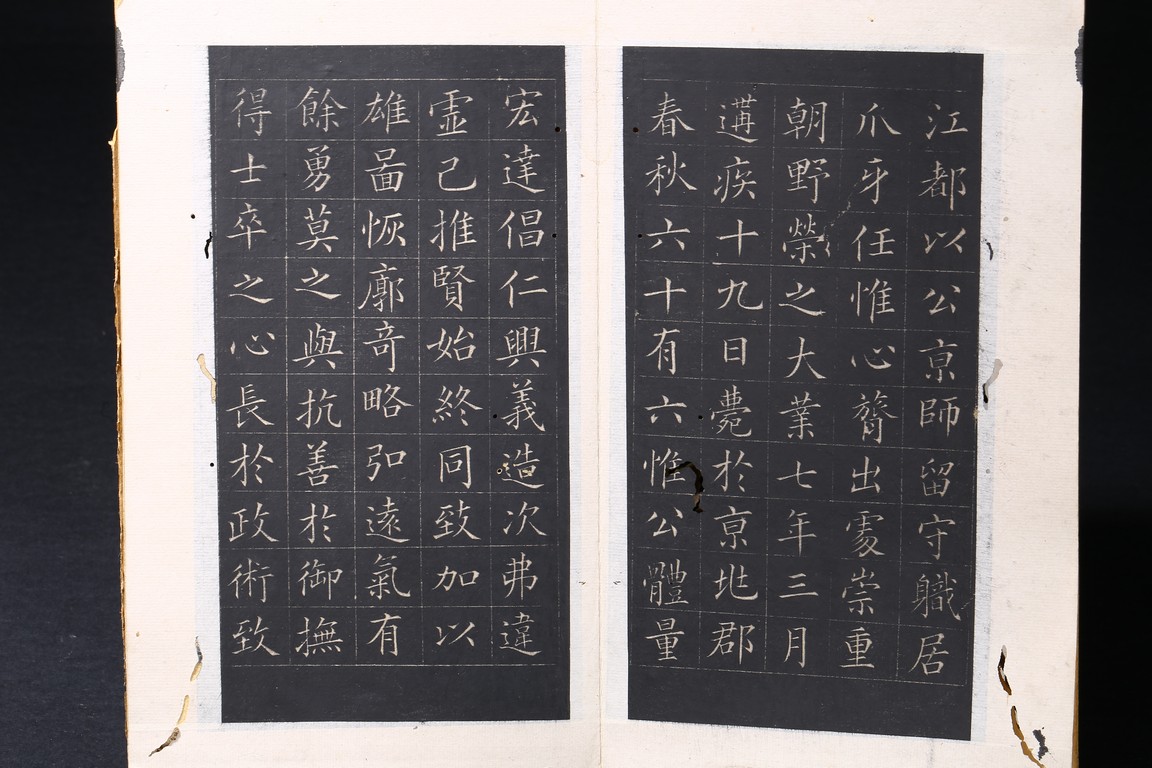 江都以公京師留守職居
爪牙任惟心膂出處崇重
朝野榮之大業七年三月
遘疾十九日薨於京地郡
春秋六十有六惟公體量
宏達倡仁興義造次弗違
虛己推賢始終同致加以
雄啚恢廓竒略弘遠氣有
餘勇莫之與抗善於御撫
得士卒之心長於政術致